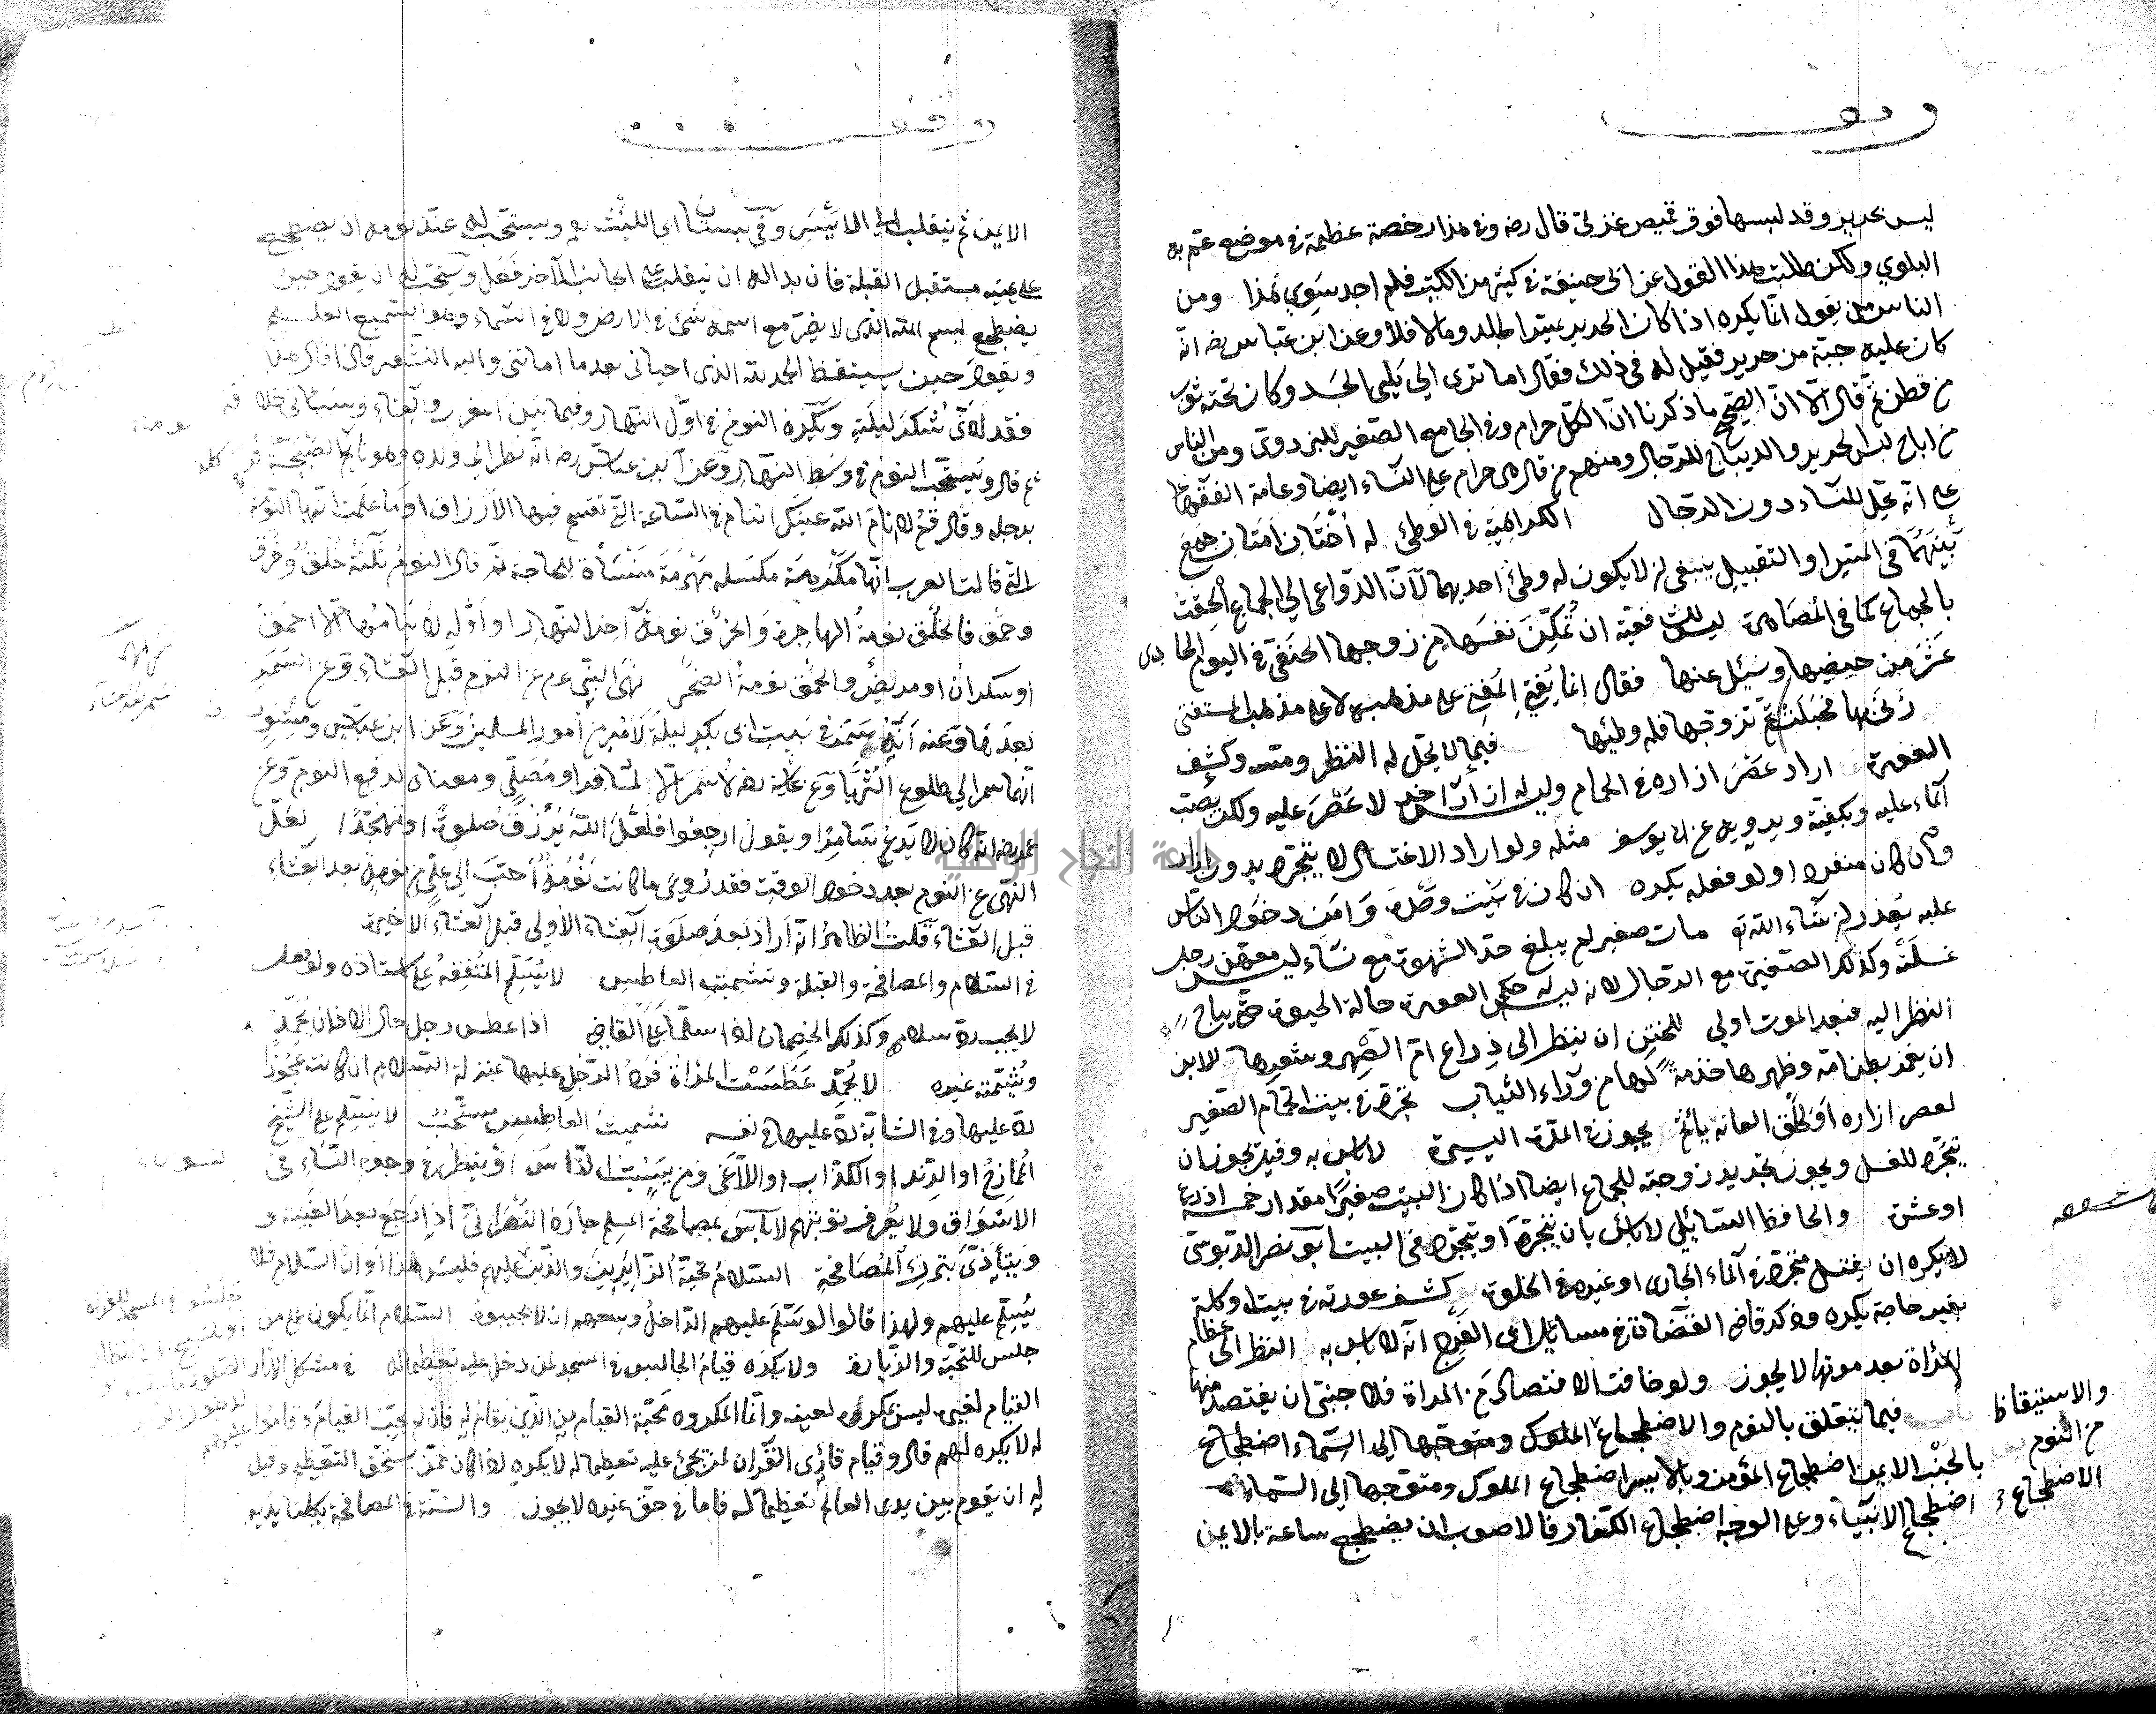 وقف
ليس بحرير وقد لبسها فوق قميص غزلي قال رضه وفي هذا رخصة عظيمة في موضع عم به
البلوي ولكن طلبت هذا القول عن ابي حنيفة في كثير من الكتب فلم اجد سوي هذا ومن
الناس من يقول انما يكره اذا كان الحرير يمس الجلد وما لا فلا وعن ابن عباس رضه انه
كان عليه جبة من حرير فقيل له في ذلك فقال اما تري الي يلي الجسد وكان تحته ثوب
من قطن ثم قال الا ان الصحيح ما ذكرنا ان الكل حرام وفي الجامع الصغير للبزدوي ومن الناس
من اباح لبس الحرير والديباج للرجال ومنهم من قال هي حرام علي النساء ايضا وعامة الفقهاء
علي انه يحل للنساء دون الرجال الكراهية في الوطئ له اختان امتان جمع
بينهما في المس او التقبيل ينبغي ان لا يكون له وطئ احديهما لان الدواعي الي الجماع الحقت
بالجماع كما في المصاهرة ليس لشفعية ان تمكن نفسها من زوجها الحنفي في اليوم الحادي
عشر من حيضها وسئل عنها فقال انما يفتي المفتي علي مذهبه لا علي مذهب المستفتي
زنى بها فحبلت ثم تزوجها فله وطئها فيما لا يحل له النظر ومسه وكشف
العورة اراد عصر ازاره في الحمام وليس له ازار اخر لا عصر عليه ولكن يصب
الماء عليه ويكفيه ويروي عن ابي يوسف مثله ولو اراد الاغتسال لا يتجرد بدون ازار
وان كان منفردا ولو فعله يكره ان كان في بيت وحده وامن دخول الناس
عليه يعذر ان شاء الله تع مات صغير لم يبلغ حد الشهوة مع نساء ليس معهن رجل
غسلنه وكذلك الصغيرة مع الرجال لانه ليس له حكم العورة حالة الحيوة حتى يباح
النظر اليه فبعد الموت اولي للختن ان ينظر الى ذراع ام الصهر وشعرها للابن
ان يغمز بطن امه وظهرها خدمة لها من وراء الثياب تجرد في بيت الحمام الصغير
لعصر ازاره او لحلق العانة يأثم يجوز في المدة اليسيرة لا باس به وقيل يجوز ان
يتجرد للغسل ويجوز تجريد زوجته للجماع ايضا اذا كان البيت صغيرا مقدار خمسة اذرع
او عشرة والحافظ السائلي لا باس بان يتجردا ويتجرد في البيت ابو نصر الدبوسي
لا يكره ان يغتسل متجردا في الماء الجاري او غيره في الخلوة كشف عورته في بيت وكله
بغير حاجة يكره وذكر قاضي القضاة في مسائل ابي الفرج انه لا باس به النظر الى عظام
المراة بعد موتها لا يجوز ولو خافت الافتصاد من المراة فلاجنبي ان يفتصد منها
باب فيما يتعلق بالنوم والاضطجاع والاستيقاظ من النوم
الاضطجاع بالجنب الايمن اضطجاع المؤمن وبالايسر اضطجاع الملوك ومتوجها الي السماء
اضطجاع الانبياء وعلي الوجه اضطجاع الكفار فالاصوب ان يضطجع ساعة بالايمن
وقف
الايمن ثم ينقلب الي الايسر وفي بستان ابي الليث ره ويستحب له عند نومه ان يضطجع
علي يمينه مستقبل القبلة فان بدا له ان ينقلب علي الجانب الاخر فعل ويستحب له ان يقول حين
يضطجع بسم الله الذي لا يضر مع اسمه شئ في الارض ولا في السماء وهو السميع العليم
ويقول حين يستيقظ الحمد لله الذي احياني بعد ما اماتني واليه النشور فاذا قال هذا
فقد ادى شكر ليلته ويكره النوم في اول النهار وفيما بين المغرب والعشاء
ثم قال ويستحب النوم في وسط النهار وعن ابن عباس رضه انه نظر الي ولده وهو نائم الصبحة
برجله وقال قم لا انام الله عينك اتنام في الساعة التي تقسم فيها الارزاق اوما علمت انها النومة
التي قالت العرب انها مكرهة مكسلة مهرمة منساة للحاجة ثم قال النوم ثلثة خلق وخرق
وحمق فالخلق نومة الهاجرة والخرق نومة آخر النهار او اوله لا ينامها الا احمق
او سكران او مريض والحمق نومة الضحى نهى النبي عم عن النوم قبل العشاء وعن السمر
بعدها وعنه انه سمر في بيت ابي بكر ليلة لامر من امور المسلمين وعن ابن عباس ومسور
انهما سمرا الي طلوع الثريا وعن عائشة رضه لا سمر الا لمسافر او مصلي ومعناه لدفع النوم وعن
عمر رضه انه كان لا يدع سامرا ويقول ارجعوا فلعل الله يرزق صلوة او تهجدا لعل
النهي عن النوم بعد دخول الوقت فقد روي ما كانت نومة احب الي علي من نومة بعد العشاء
قبل العشاء قلت الظاهر انه اراد بعد صلوة العشاء الاولى قبل العشاء الاخيرة
في السلام والمصافحة والقبلة وتشميت العاطس لا يسلم المتفقه علي استاذه ولو فعل
لا يجب رد سلامه وكذلك الخصمان اذا سلما علي القاضي اذا عطس رجل حال الاذان يحمد
ويشمته غيره لا يحمد عطست المراة فرد الرجل عليها بمنزلة السلام ان كانت عجوزا
رد عليها وفي الشابة رد عليها في نفسه تشميت العاطس مستحب لا يسلم علي الشيخ
الممازح او الرند او الكذاب او اللاغي ومن يسب الناس او ينظر في وجوه النساء في
الاسواق ولا يعرف توبتهم لا باس بمصافحة المسلم جاره النصراني اذا رجع بعد الغيبة و
ويتأذى بترك المصافحة السلام تحية الزائرين والذين عليهم فليس هذا اوان السلام فلا
يسلم عليهم ولهذا قالوا لو سلم عليهم الداخل وسعهم ان لا يجيبوه السلام انما يكون علي من
جلس للتحية والزيارة ولا يكره قيام الجالس في المسجد لمن دخل عليه تعظيما له في مشكل الآثار
القيام لغيره ليس بمكروه لعينه وانما المكروه محبة القيام من الذي يقام له فان لم يحب القيام وقاموا
له لا يكره لهم قال وقيام قارئ القرآن لمن يجئ عليه تعظيما له لا يكره اذا كان ممن يستحق التعظيم وقيل
له ان يقوم بين يدي العالم تعظيما له فاما في حق غيره لا يجوز والسنة في المصافحة بكلتا يديه
جامعة النجاح الوطنية